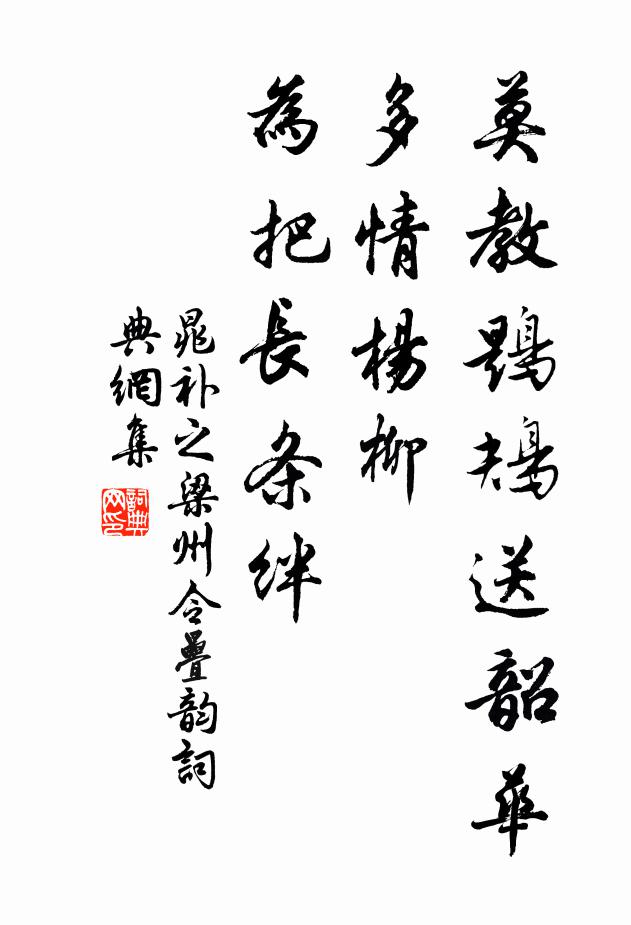 莫教鶗鴂送韶華
多情楊柳
為把長条絆
晁补之梁州令疊韵詞
典網集
詞典网印